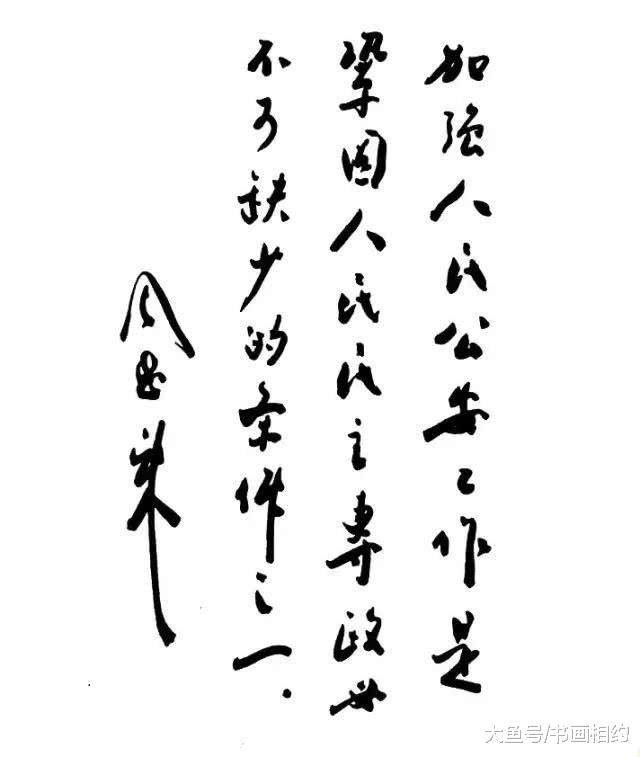 加强人民公安工作是
鞏固人民民主專政必
不可缺少的条件之一.
周恩来
大鱼号/书画相约